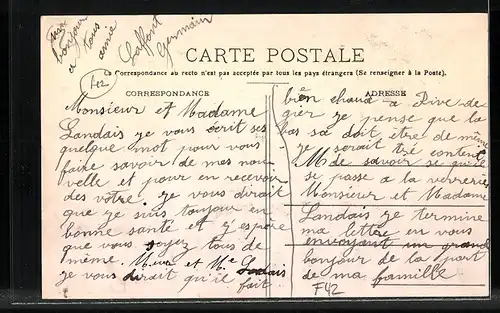 bonjour
a tous
amie
Laffont
Germain
CARTE POSTALE
La Correspondance au recto n'est pas acceptée par tous les pays étrangers (Se renseigner à la Poste).
402
CORRESPONDANCE
Monsieur et Madame
Landais je vous écrit ses
quelque mot pour vous
faire savoir de mes nou
velle et pour en recevoir
des votre. je vous dirait
que je suis toujour en
bonne santé et j'espère
que vous soyez tous de
même. Mr et Me Landais
je vous dirait qu'il fait
ADRESSE
bien chaud a Rive de
gier je pense que la
bas sa doit être de même
je serait tré contente
de savoir se qui
se passe a la verrerie
Monsieur et Madame
Landais je termine
ma lettre en vous
envoyant un grand
bonjour de la part
de ma famille
F42